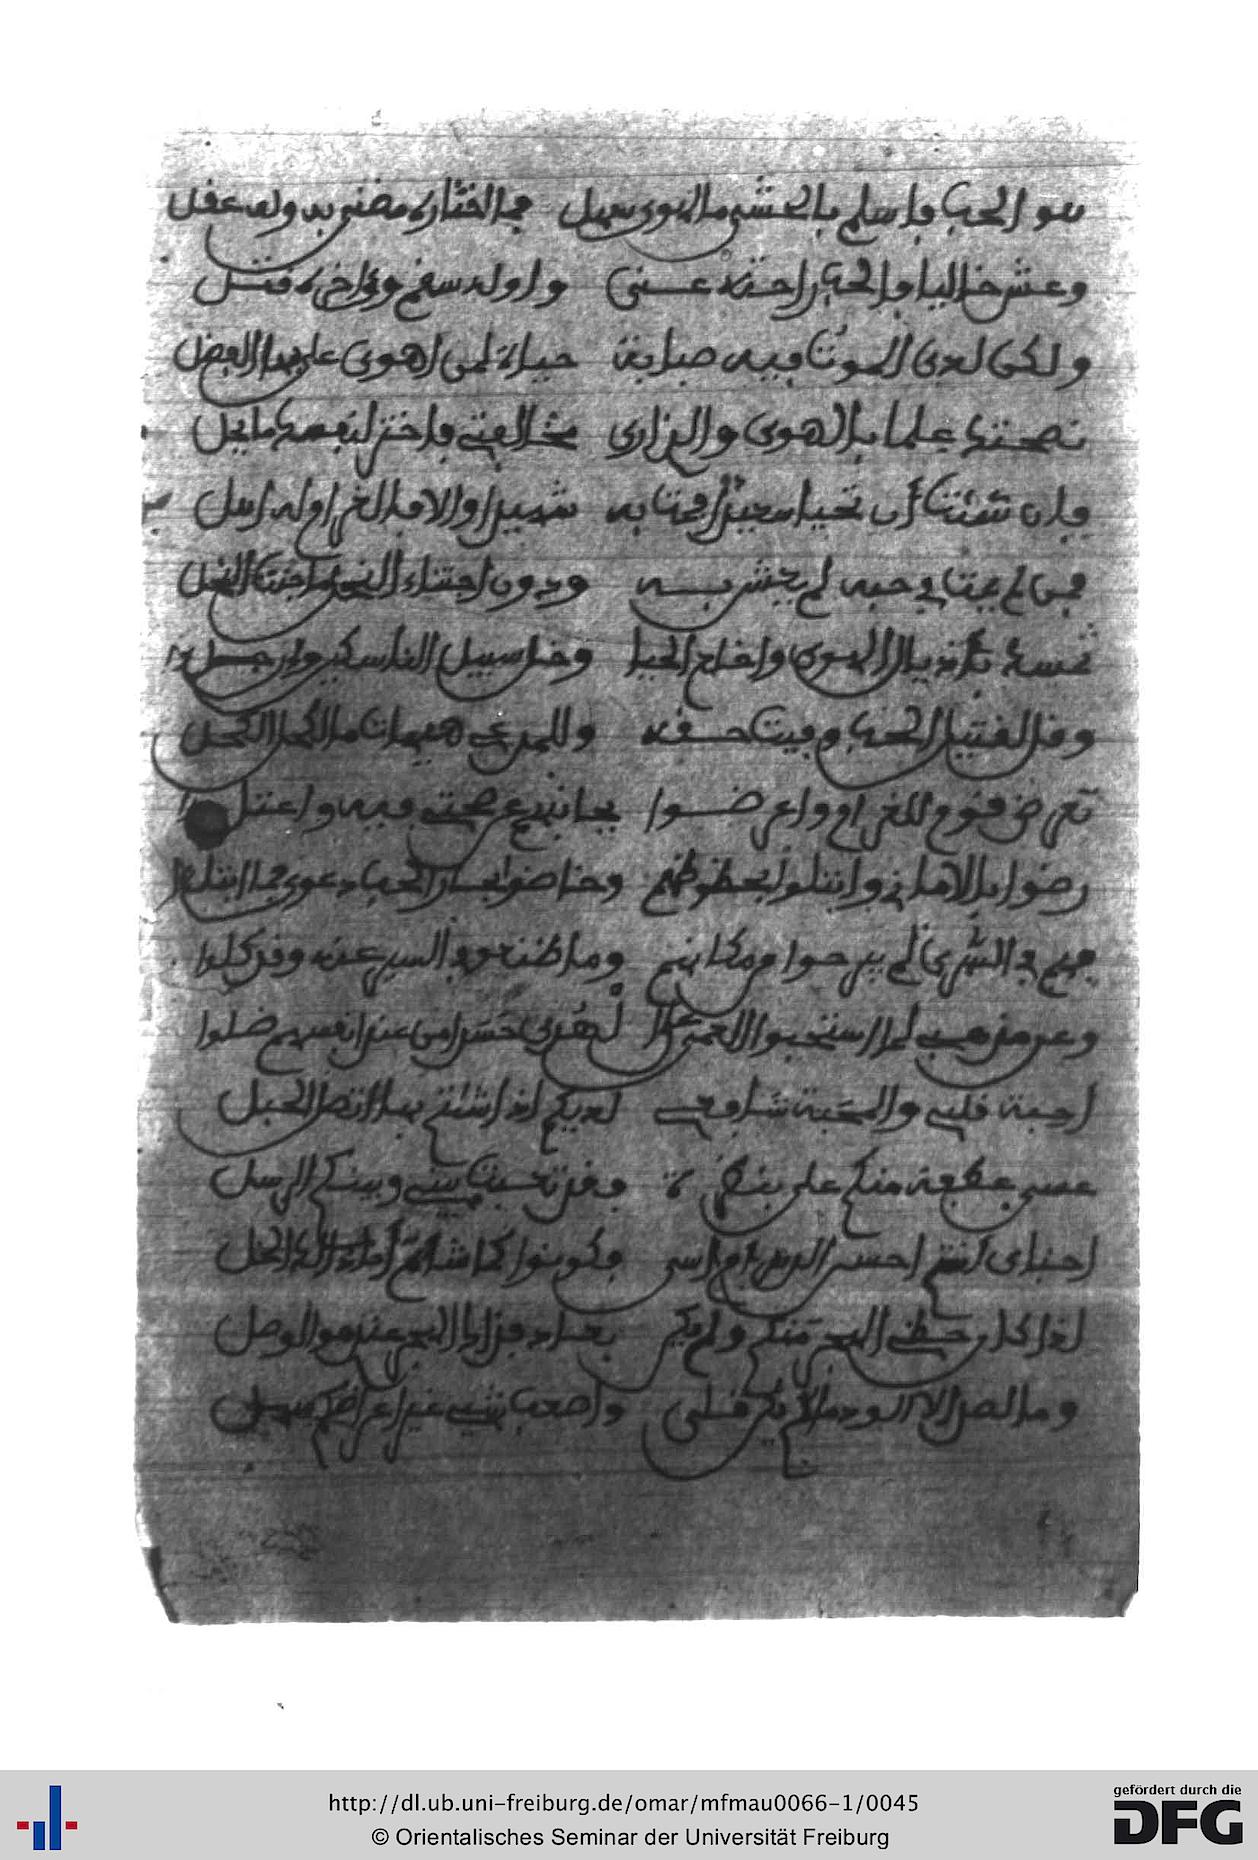 هو الحب فاسلم بالحشى ما الهوى سهل فما اختاره مضنى به وله عقل
وعش خاليا فالحب راحته عنى واوله سقم وءاخره قتل
ولكن لدى الموت فيه صبابة حياة لمن اهوى علي بها الفضل
نصحتك علما بالهوى والذي ارى مخالفتي فاختر لنفسك ما يحل
فان شئت أن تحيا سعيدا فمت به شهيدا والا فالغرام له اهل
فمن لم يمت في حبه لم يعش به ودون اجتناء النحل ما جنت النحل
تمسك باذيال الهوى واخلع الحيا وخل سبيل الناسكين وان جلوا
وقل لقتيل الحب وفيت حقه وللمدعي هيهات ما الكحل الكحل
تعرض قوم للغرام واعرضوا بجانبهم عن صحتي فيه واعتلوا
رضوا بالاماني وابتلوا بحظوظهم وخاضوا بحار الحب دعوى فما ابتلوا
فهم في السرى لم يبرحوا من مكانهم وما ظعنوا في السير عنه وقد كلوا
وعن مذهبي لما استحبوا العمى على الهدى حسدا من عند انفسهم ضلوا
احبة قلبي والمحبة شافعي لديكم اذا شئتم بها اتصل الحبل
عسى عطفة منكم علي بنظرة فقد تعبت بيني وبينكم الرسل
احباي أنتم احسن الدهر ام اسى فكونوا كما شئتم أنا ذلك الخل
اذا كان حظي الهجر منكم ولم يكن بعاد فذاك الهجر عندي هو الوصل
وما الصد الا الود ما لم يكن قلى واصعب شيء غير اعراضكم سهل
http://dl.ub.uni-freiburg.de/omar/mfmau0066-1/0045
© Orientalisches Seminar der Universität Freiburg
gefördert durch die
DFG